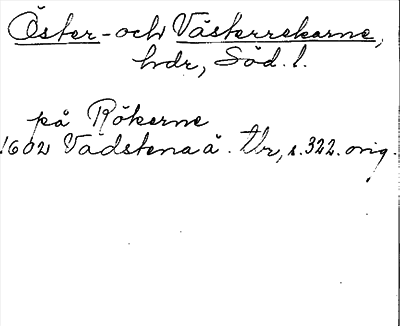 Öster- och Västerrekarne,
hdr, Söd. l.
på Rökerne
1602 Vadstena ä. Ur, s. 322. orig.